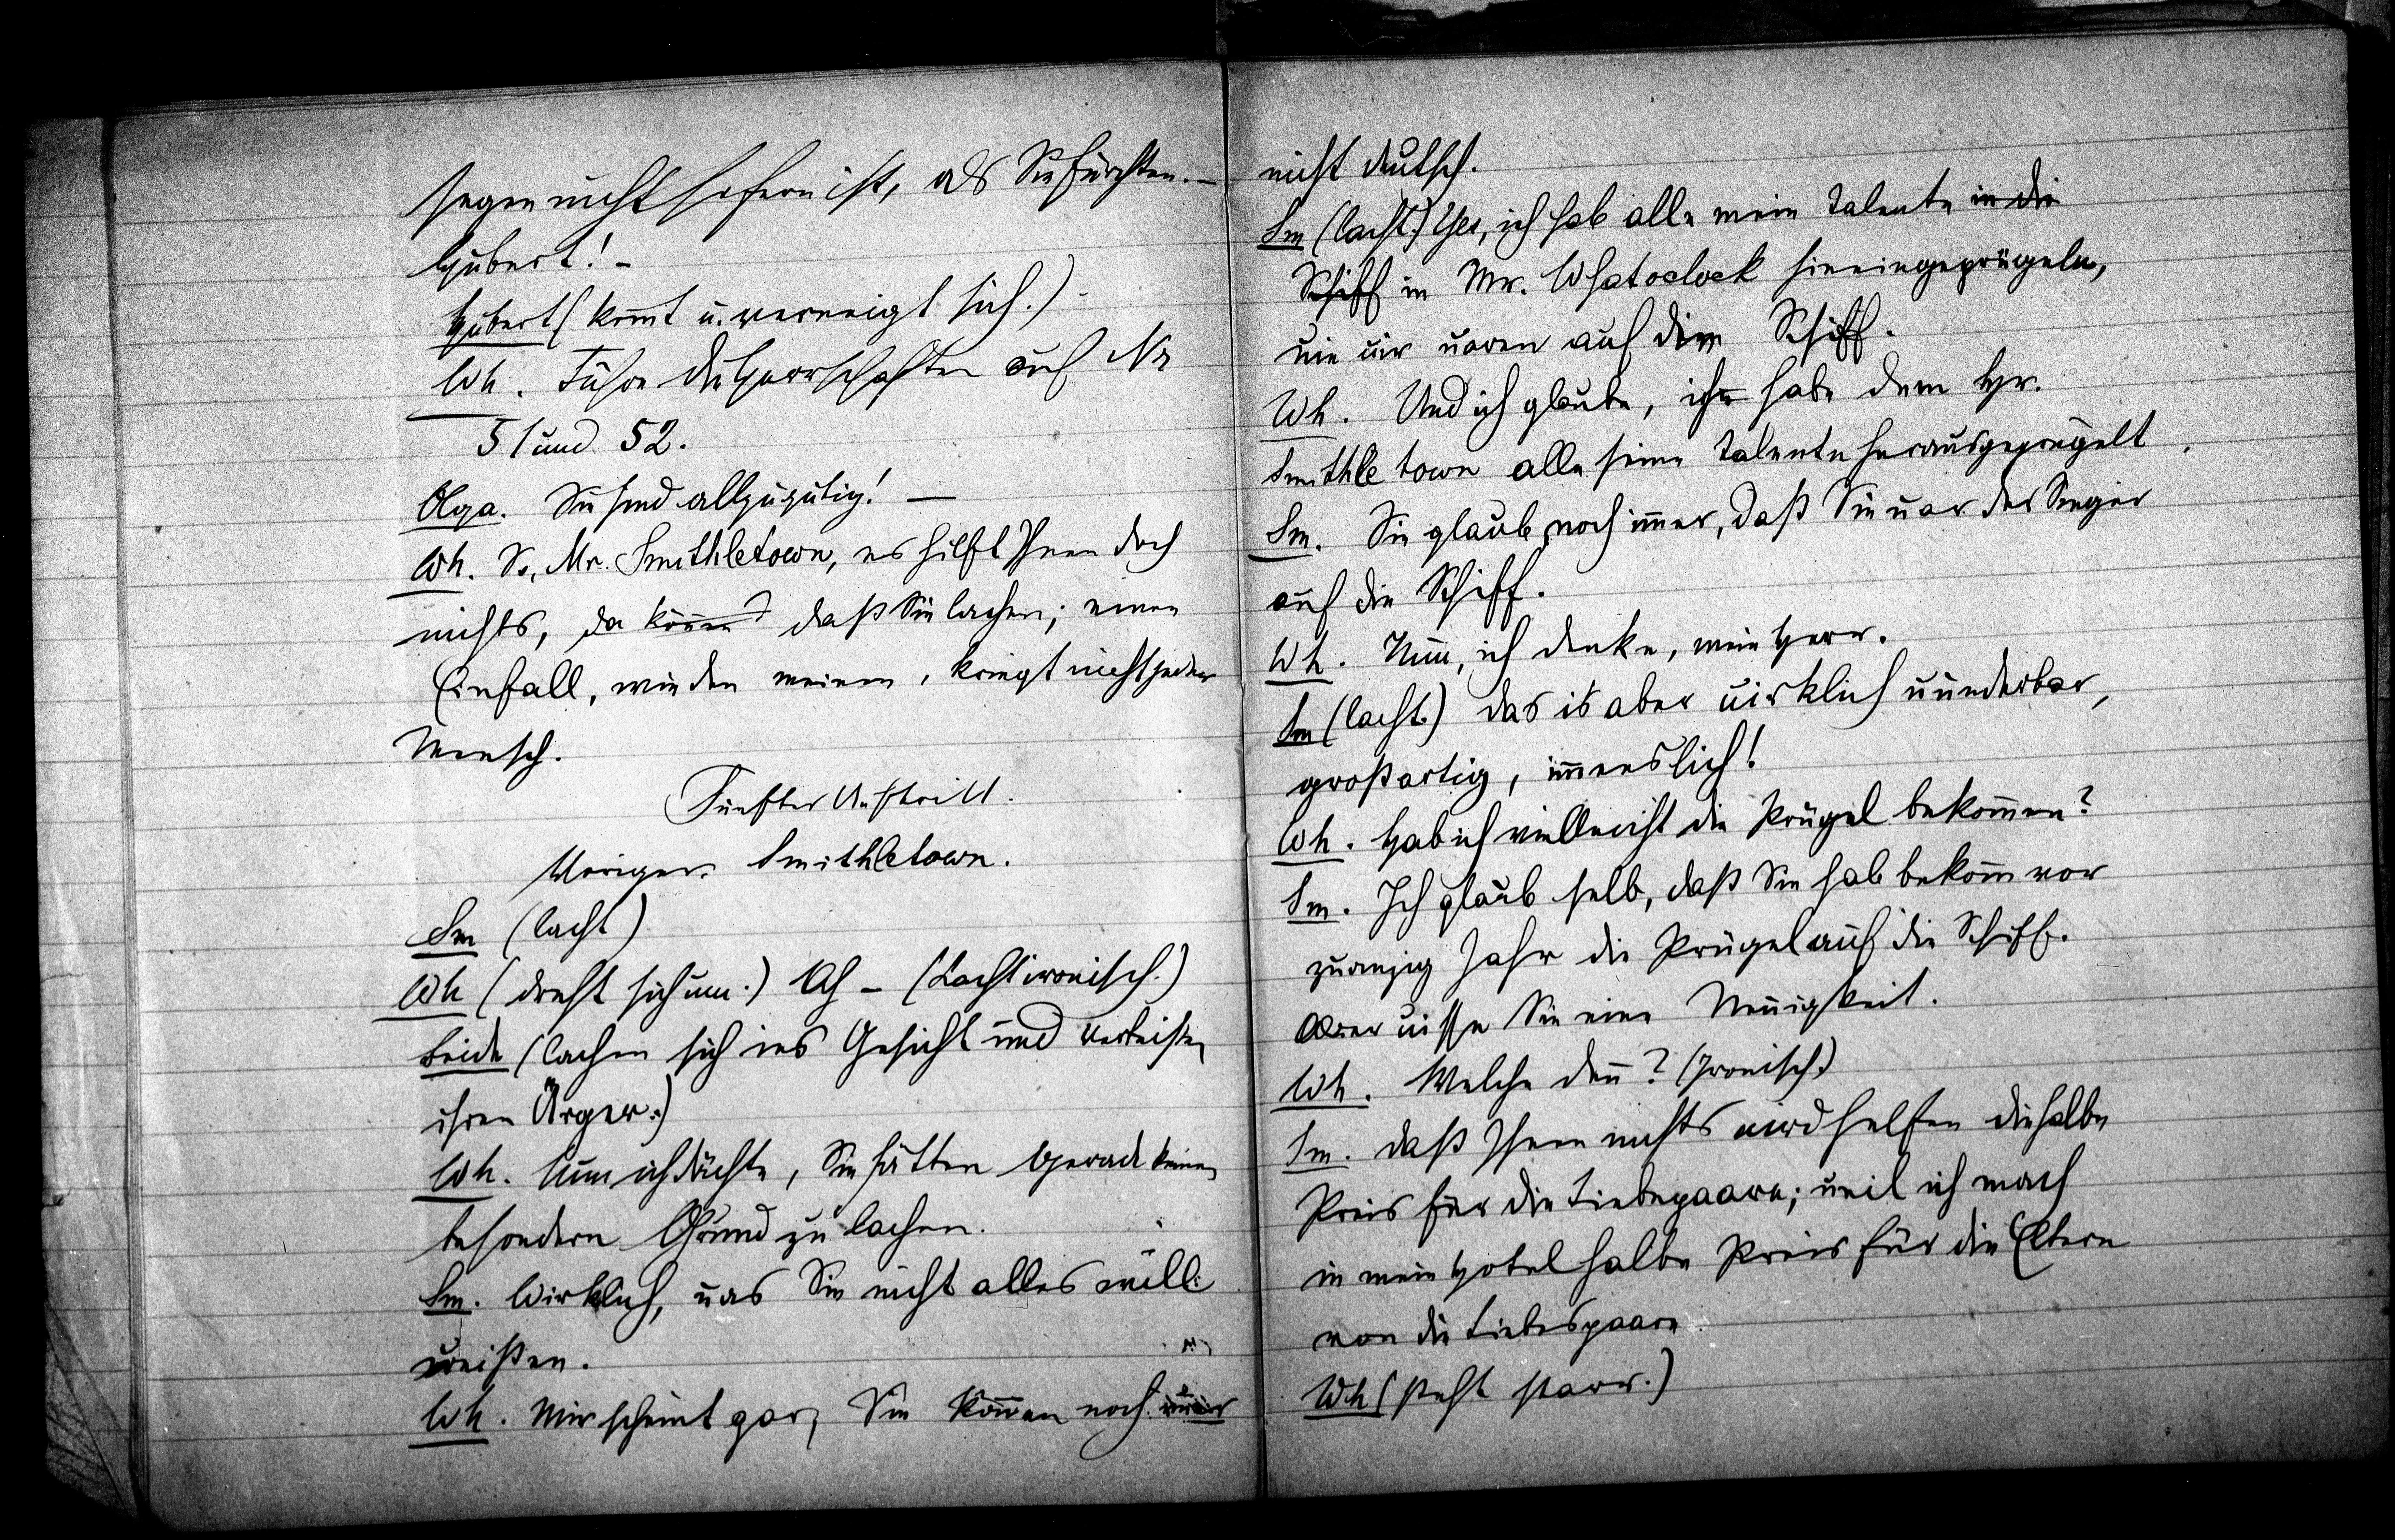 segen nicht so fern ist, als Sie fürchten. –
Hubert! –
Hubert (kommt u. verneigt sich.)
Wh. Führe die Herrschaften auf Nr
51 und 52.
Olga. Sie sind allzugütig! —
Wh. So, Mr. Smithletown, es hilft Ihnen doch
nichts, da können daß Sie lachen; einen
Einfall, wie den meinen, kriegt nicht jeder
Mensch.
Fünfter Auftritt.
Voriger. Smithletown.
Sm (lacht)
Wh (dreht sich um.) Ah – (Lacht ironisch.)
Beide (lachen sich ins Gesicht und verbeißen
ihren Ärger.)
Wh. Nun ich dächte, Sie hätten gerade keinen
besondern Grund zu lachen.
Sm. Wirklich, uas Sie nicht alles uill
ueißen.
Wh. Mir scheint gar, Sie können noch immer
nicht deutsch.
Sm (lacht.) Yes, ich hab alle mein Talente in die
Schiff in Mr. Whatoclock hineingeprügeln,
uie uir uaren auf die Schiff.
Wh. Und ich glaube, ich habe dem Hr.
Smithletown alle seine Talente herausgeprügelt.
Sm. Sie glaub noch immer, daß Sie uar der Sieger
auf die Schiff.
Wh. Nun, ich denke, mein Herr.
Sm (lacht.) das is aber uirklich uunderbar,
großartig, immenslich!
Wh. Hab ich vielleicht die Prügel bekommen?
Sm. Ich glaub selb, daß Sie hab bekomm vor
zuanzig Jahr die Prügel auf die Schiff.
Aber uisse Sie eine Neuigkeit.
Wh. Welche denn? (Ironisch.)
Sm. daß Ihnen nichts uird helfen die halbe
Preis für die Liebespaare; ueil ich mach
in mein Hotel halbe Preis für die Eltern
von die Liebespaare
Wh (steht starr.)